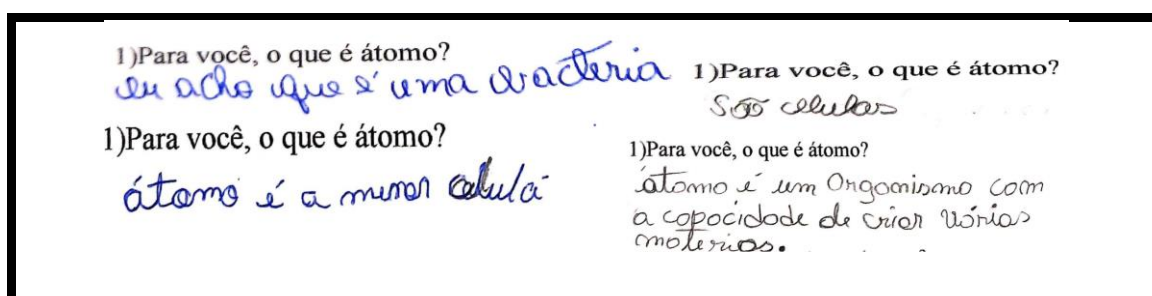 1)Para você, o que é átomo?
eu acho que é uma bacteria
1)Para você, o que é átomo?
São celulas
1)Para você, o que é átomo?
átomo é a menor celula
1)Para você, o que é átomo?
átomo é um Organismo com
a capacidade de criar várias
materias.